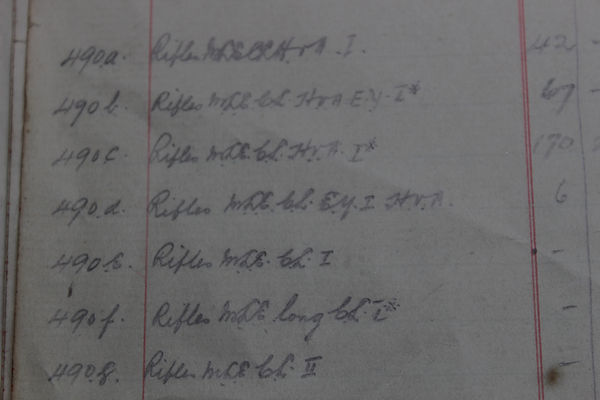 490a. Rifles MLE CL H.V.A. I. 42 -
490b. Rifles MLE CL H.V.A E.Y. I* 67 -
490c. Rifles MLE. CL. H.V.A. I* 170
490.d. Rifles MLE. CL. E.Y. I H.V.A. 6
490.E. Rifles MLE. CL. I -
490f. Rifles MLE long CL. I* -
490.g. Rifles MLE CL. II -